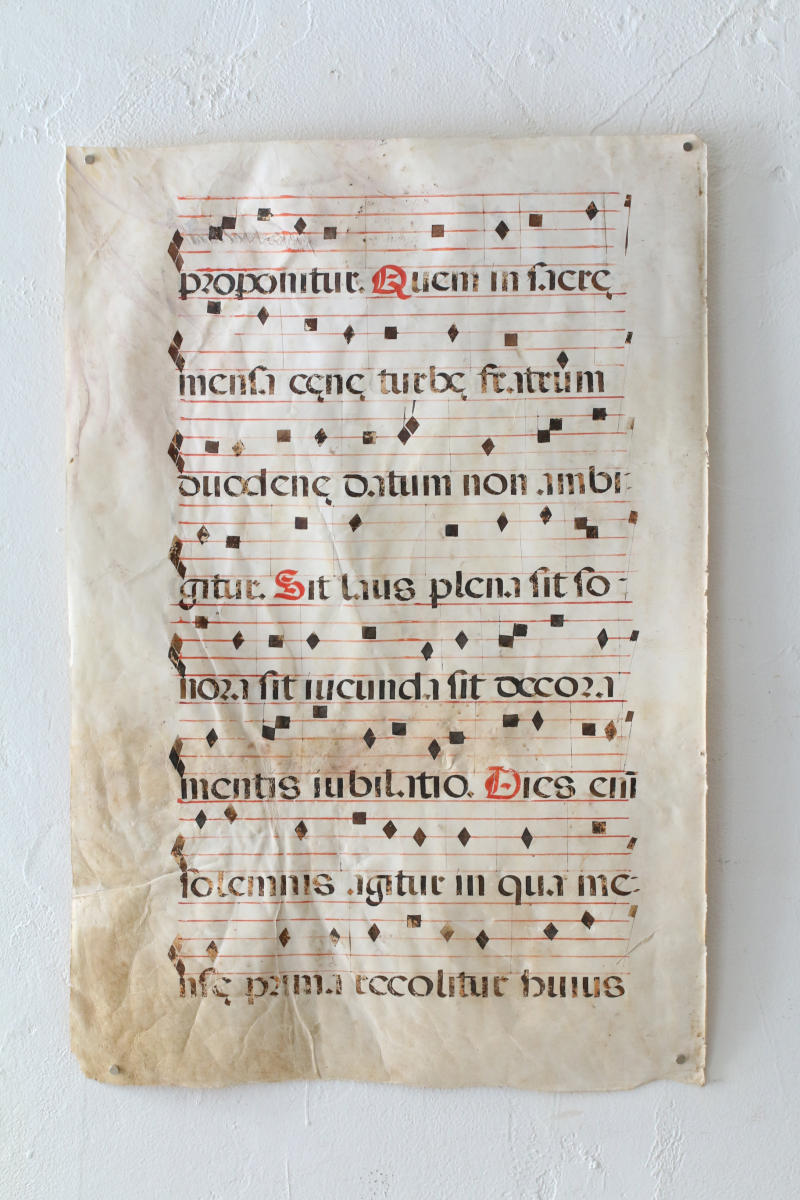 proponitur. Quem in sacrę
mensa cęnę turbę fratrum
duodenę datum non ambi-
gitur. Sit laus plena sit so-
nora sit iucunda sit decora
mentis iubilatio. Dies enī
solemnis agitur in qua me-
nsę prima recolitur huius